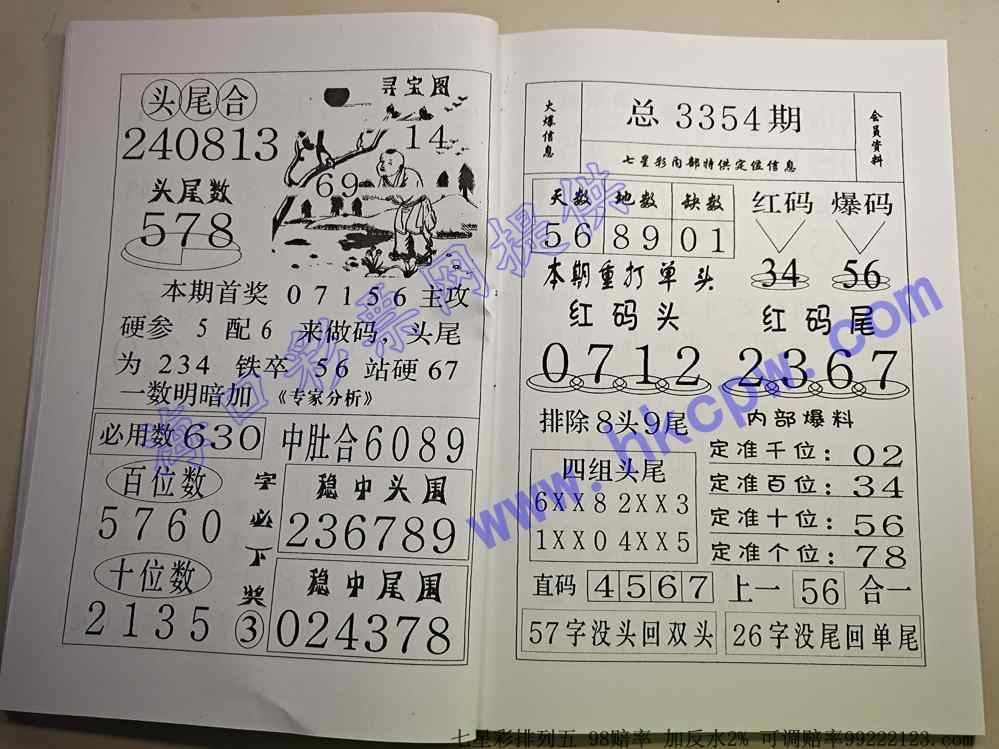 头尾合
240813
头尾数
578
寻宝图
14
69
本期首奖 07156 主攻
硬参 5 配 6 来做码，头尾
为 234 铁卒 56 站硬 67
一数明暗加 《专家分析》
必用数 630
中肚合 6089
百位数
5760
十位数
2135
字必下奖③
稳中头围
236789
稳中尾围
024378
火爆信息
总 3354 期
七星彩内部特供定位信息
会员资料
天数 地数 缺数
56 89 01
红码 爆码
34 56
本期重打单头
红码头 红码尾
0712 2367
排除8头9尾
四组头尾
6XX8 2XX3
1XX0 4XX5
内部爆料
定准千位：02
定准百位：34
定准十位：56
定准个位：78
直码 4567 上一 56 合一
57字没头回双头
26字没尾回单尾
海口彩票网提供
www.hkcpw.com
七星彩排列五 98赔率 加反水2% 可调赔率99222123.com